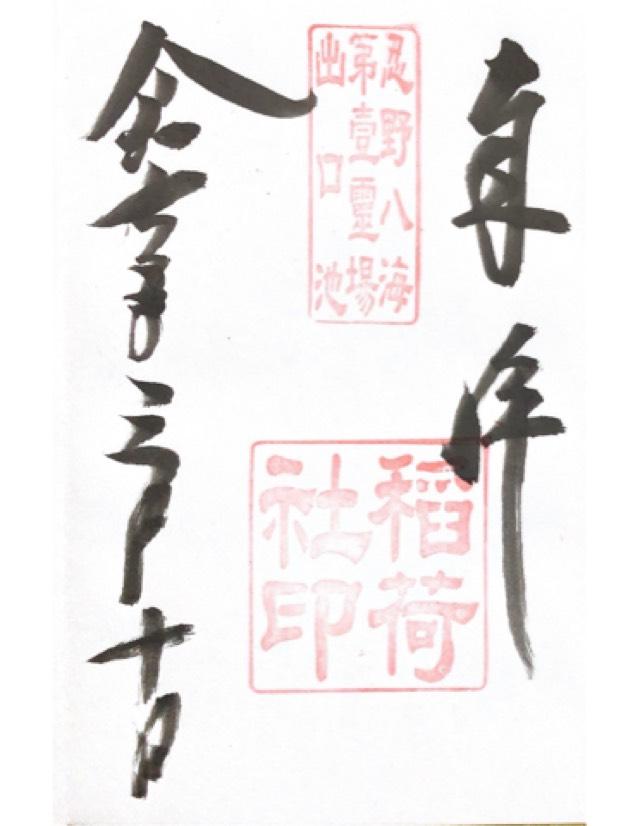 奉拝
忍野八海
第壹靈場
出口池
稲荷
社印
令和七年三月十日